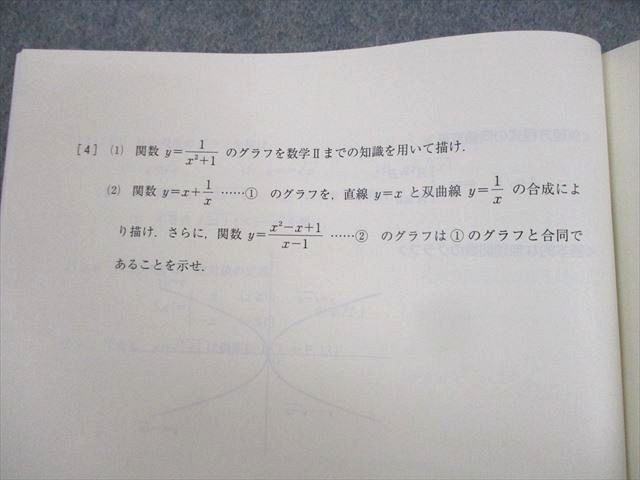 [4] (1) 関数 y=1/(x²+1) のグラフを数学Ⅱまでの知識を用いて描け.
(2) 関数 y=x+1/x ……① のグラフを, 直線 y=x と双曲線 y=1/x の合成によ
り描け. さらに, 関数 y=(x²−x+1)/(x−1) ……② のグラフは①のグラフと合同で
あることを示せ.